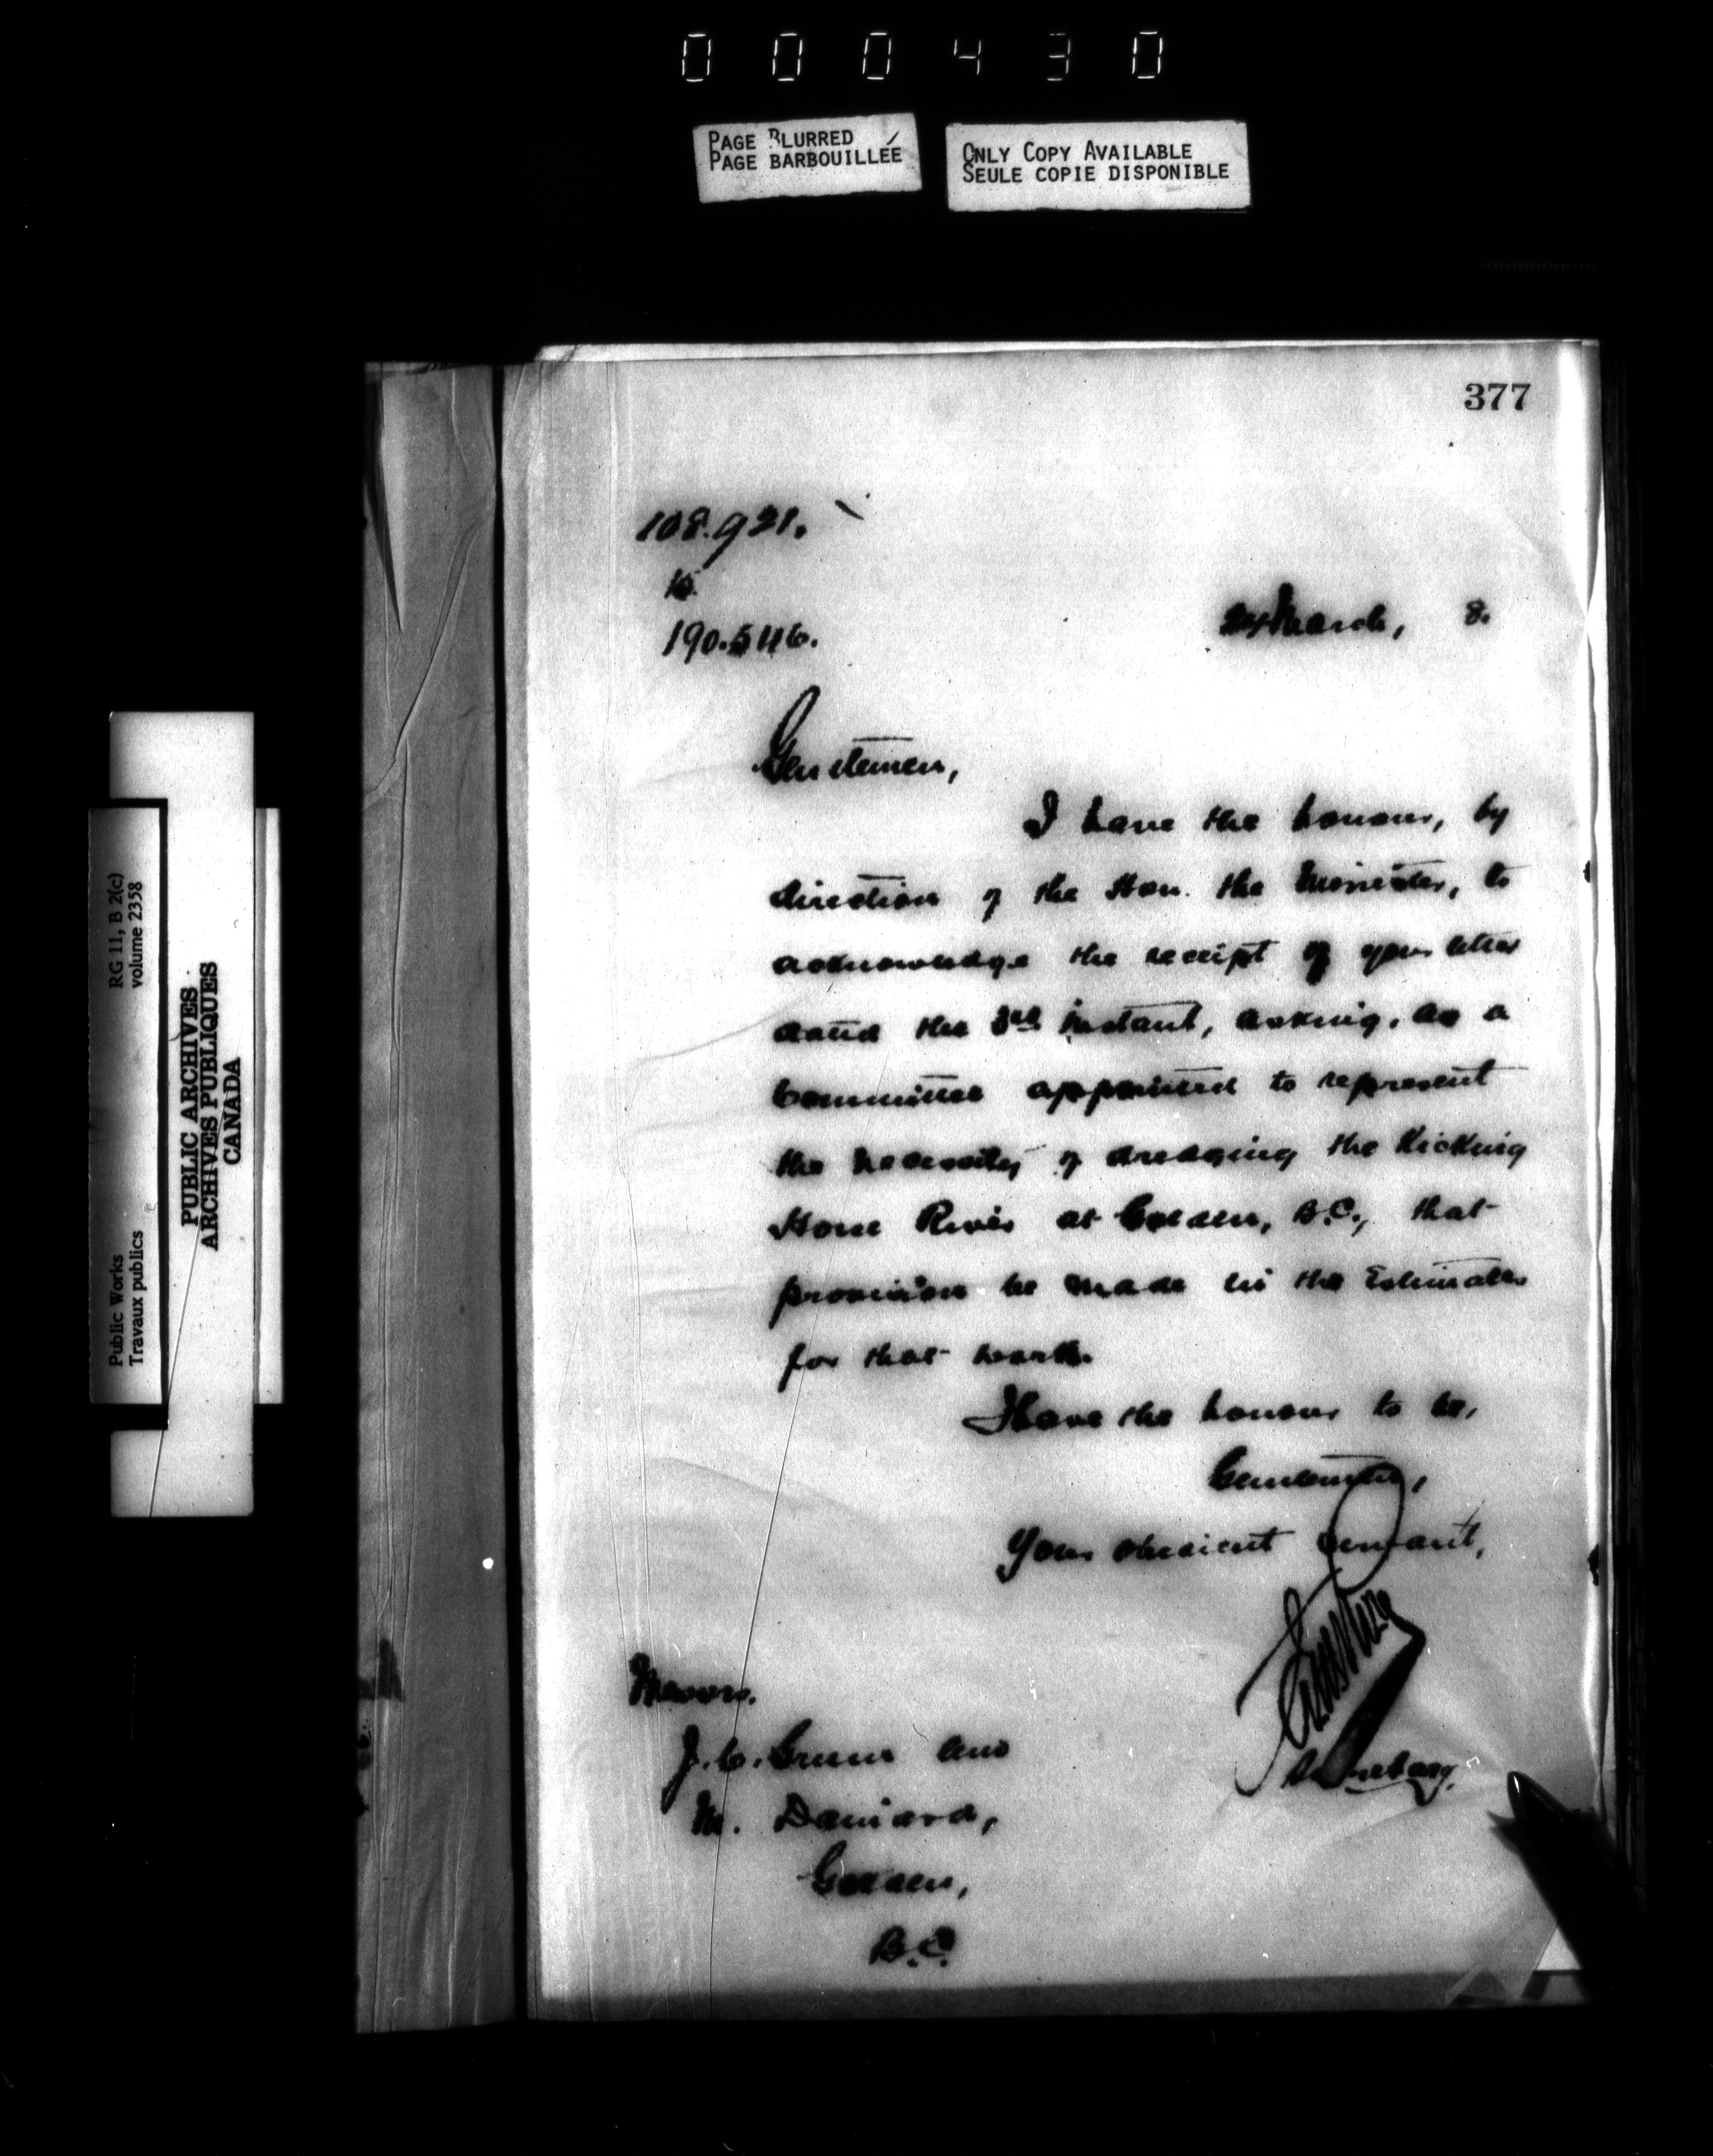 000430
PAGE BLURRED
PAGE BARBOUILLÉE
ONLY COPY AVAILABLE
SEULE COPIE DISPONIBLE
377
108.921.
to
190.546.
24 March, 8.
Gentlemen,
I have the honour, by
direction of the Hon. the Minister, to
acknowledge the receipt of your letter
dated the 3rd instant, asking, as a
Committee appointed to represent
the necessity of dredging the Kicking
Horse River at Golden, B.C., that
provision be made in the Estimates
for that work.
I have the honour to be,
Gentlemen,
Your obedient servant,
Secretary.
Messrs.
J. C. Greene and
M. Dainard,
Golden,
B.C.
Public Works
Travaux publics
RG 11, B 2(c)
volume 2358
PUBLIC ARCHIVES
ARCHIVES PUBLIQUES
CANADA